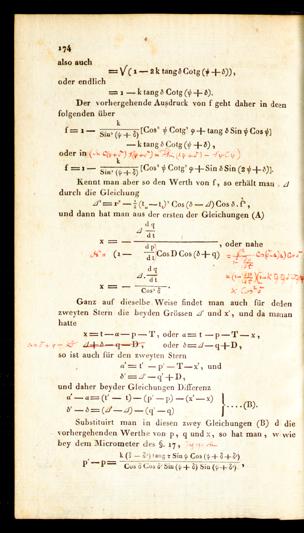 174
also auch
= √ (1 — 2 k tang δ Cotg (ψ + δ)),
oder endlich
= 1 — k tang δ Cotg (ψ + δ).
Der vorhergehende Ausdruck von f geht daher in den
folgenden über
f = 1 — k / Sin² (ψ + δ) [Cos² ψ Cotg² φ + tang δ Sin ψ Cos ψ]
— k tang δ Cotg (ψ + δ),
oder in
f = 1 — k / Sin² (ψ + δ) [Cos² ψ Cotg² φ + Sin δ Sin (2 ψ + δ)].
Kennt man aber so den Werth von f, so erhält man Δ
durch die Gleichung
und dann hat man aus der ersten der Gleichungen (A)
x = Δ dq/dt / (1 — dp/dt Cos D Cos (δ + q)), oder nahe
x = Δ . dq/dt / Cos² δ .
Ganz auf dieselbe Weise findet man auch für den
zweyten Stern die beyden Grössen Δ und x', und da man
hatte
x = t — a — p — T, oder a = t — p — T — x,
Δ + b — q — D, oder b = Δ — q + D,
so ist auch für den zweyten Stern
a' = t' — p' — T — x', und
b' = Δ' — q' + D,
und daher beyder Gleichungen Differenz
a' — a = (t' — t) — (p' — p) — (x' — x)
b' — b = (Δ' — Δ) — (q' — q) } .... (B).
Substituirt man in diesen zwey Gleichungen (B) die
vorhergehenden Werthe von p, q und x, so hat man, wie
bey dem Micrometer des §. 17,
p' — p = k (δ — δ') tang τ Sin ψ Cos (ψ + δ + δ') / Cos δ Cos δ' Sin (ψ + δ) Sin (ψ + δ') ,